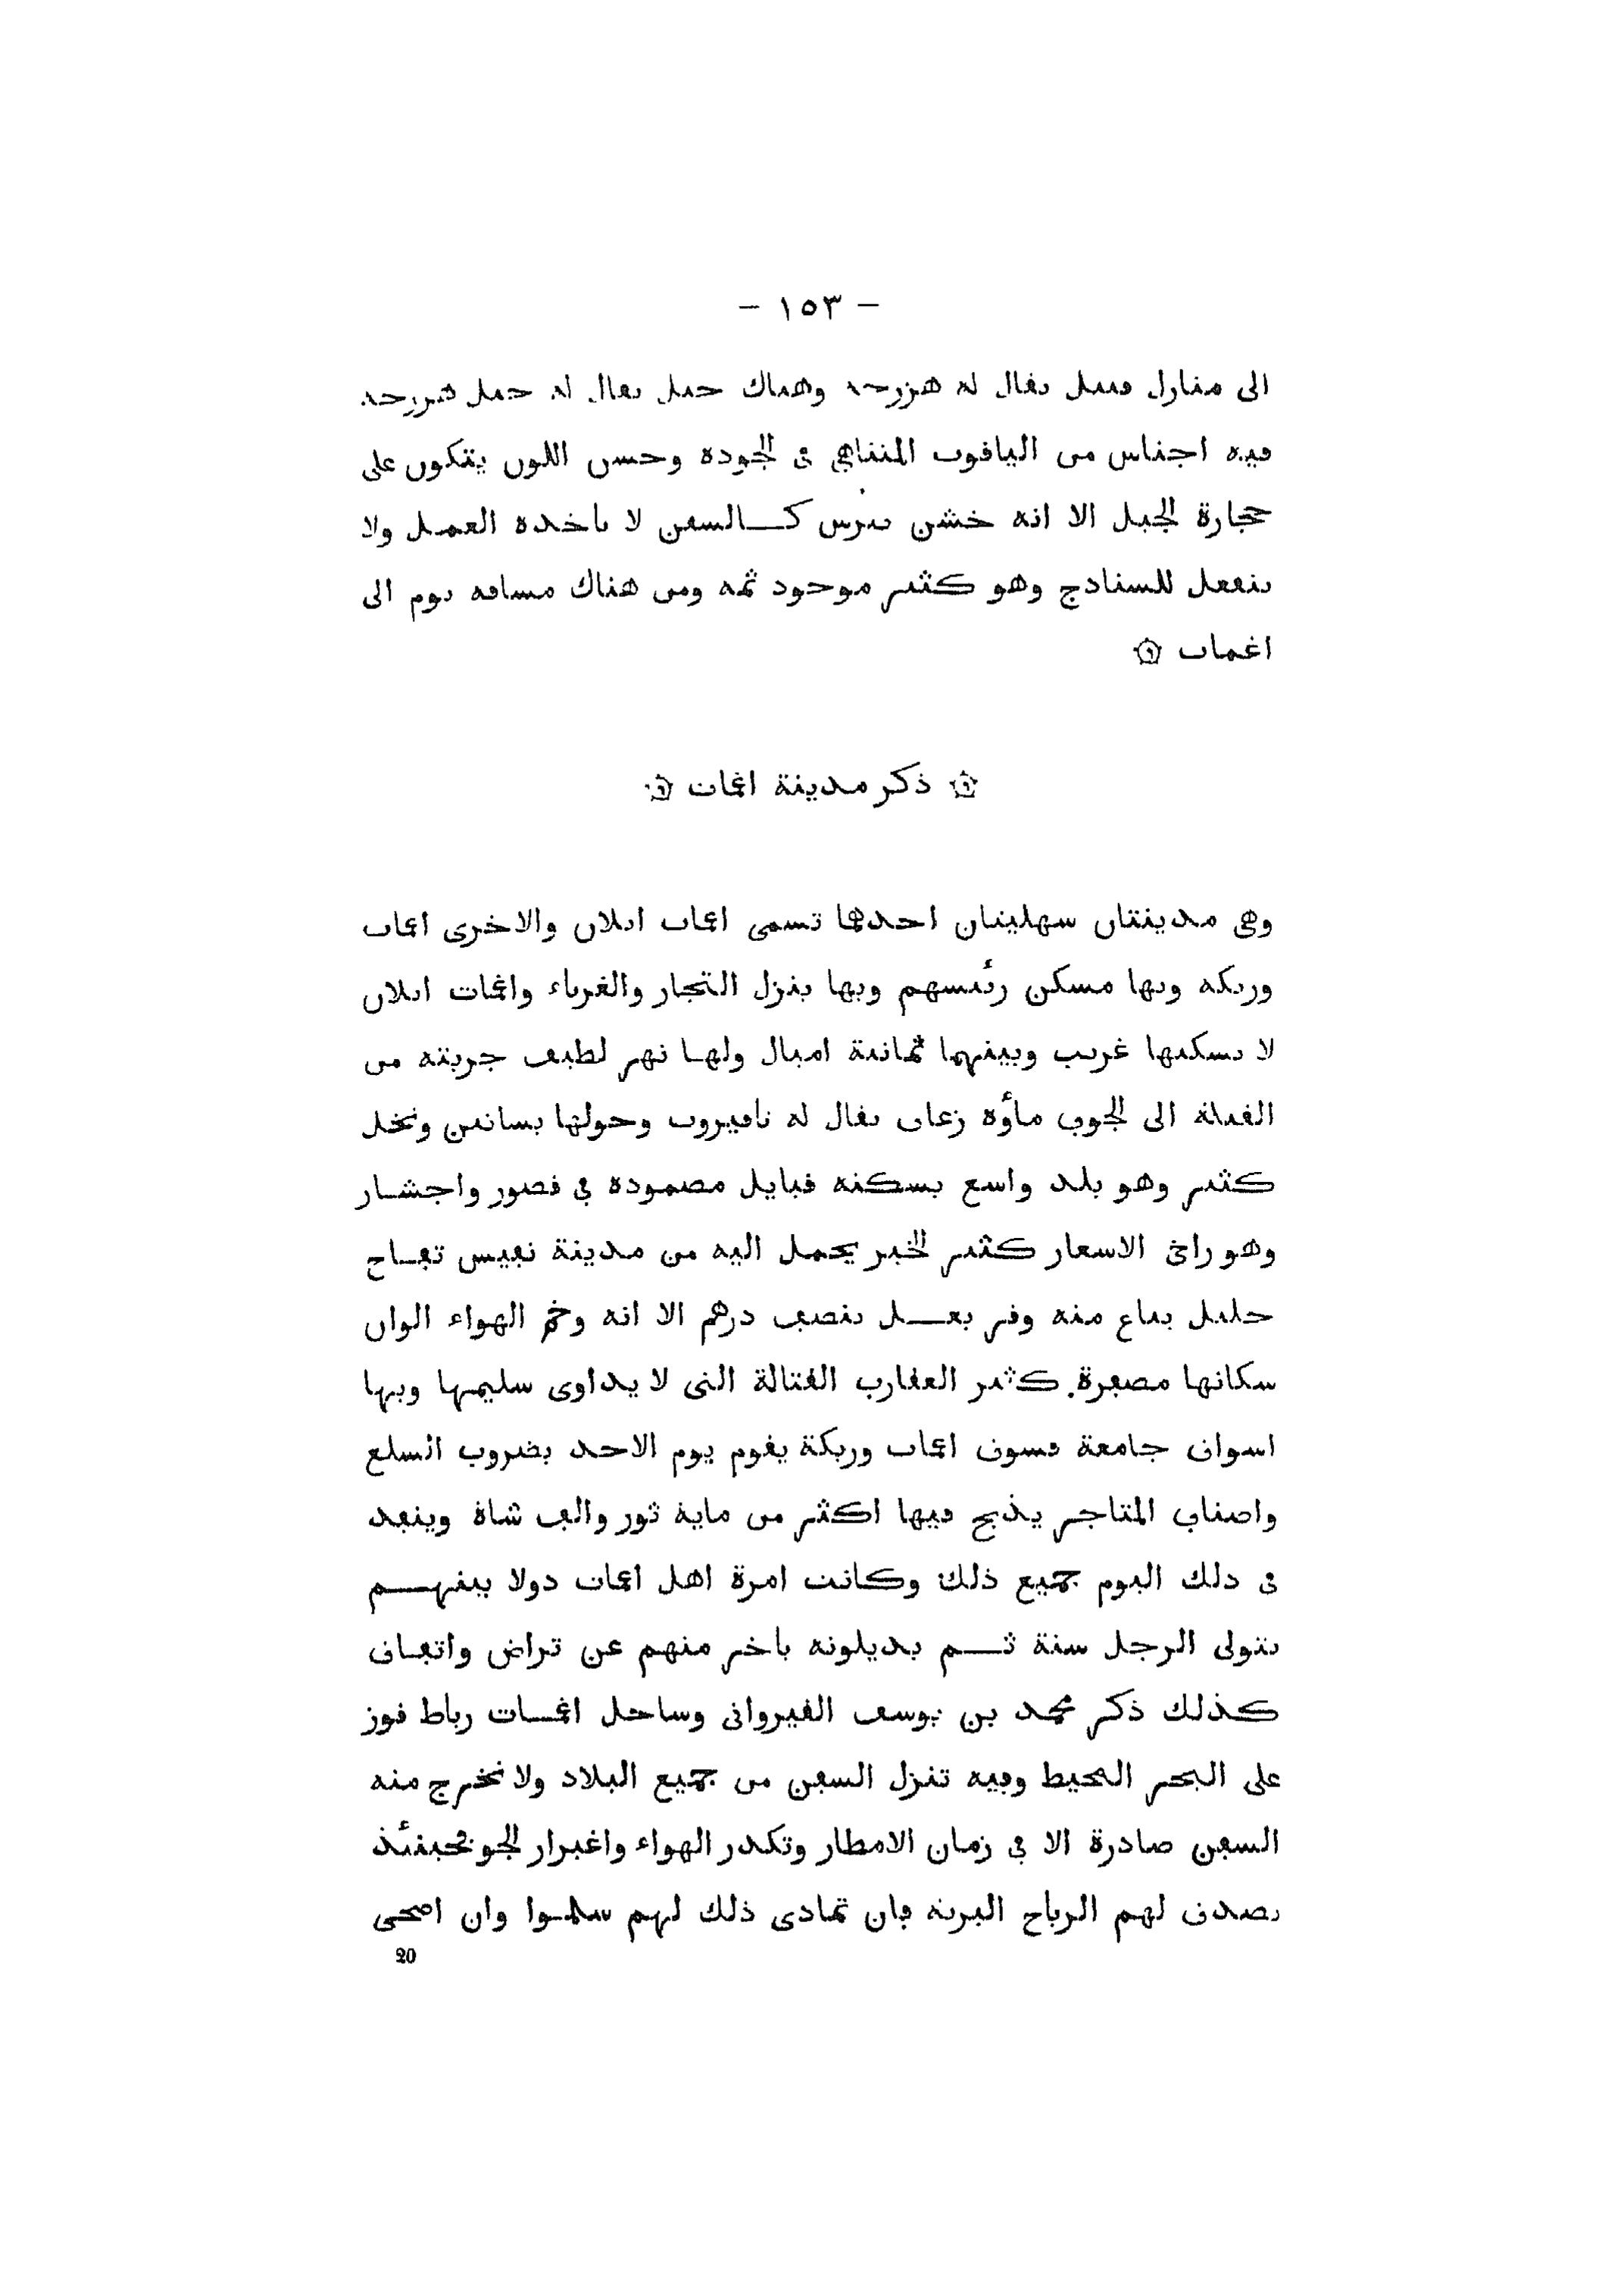 - ١٥٣ -
الى منازل قبيل يقال له هزرجة وهناك جبل يقال له جبل هزرجة
فيه اجناس من الياقوت المتناهى فى الجودة وحسن اللون يتكون على
حجارة الجبل الا انه خشن يترس كالسفن لا ياخذه العمل ولا
ينفعل للسنادج وهو كثير موجود ثمه ومن هناك مسافه يوم الى
اغمات
ذكر مدينة اغمات
وهى مدينتان سهليتان احدهما تسمى اغمات ايلان والاخرى اغمات
وريكه وبها مسكن رئيسهم وبها ينزل التجار والغرباء واغمات ايلان
لا يسكنها غريب وبينهما ثمانية اميال ولها نهر لطيف جريته من
القبلة الى الجوب ماؤه زعاف يقال له تافيروت وحولها بساتين ونخل
كثير وهو بلد واسع يسكنه قبايل مصمودة فى قصور واجشار
وهو راخى الاسعار كثير الخير يحمل اليه من مدينة نفيس تفاح
جليل يباع منه وقر بغل بنصف درهم الا انه وخم الهواء الوان
سكانها مصفرة كثير العقارب القتالة التى لا يداوى سليمها وبها
اسواق جامعة فسوق اغمات وريكة يقوم يوم الاحد بضروب السلع
واصناف المتاجر يذبح فيها اكثر من ماية ثور والف شاة وينفد
فى ذلك اليوم جميع ذلك وكانت امرة اهل اغمات دولا بينهم
يتولى الرجل سنة ثم يديلونه باخر منهم عن تراض واتفاق
كذلك ذكر محمد بن يوسف القيروانى وساحل اغمات رباط قوز
على البحر المحيط وفيه تنزل السفن من جميع البلاد ولا تخرج منه
السفن صادرة الا فى زمان الامطار وتكدر الهواء واغبرار الجو فحينئذ
يصدق لهم الرياح البرية فان تمادى ذلك لهم سلموا وان اصحى
20